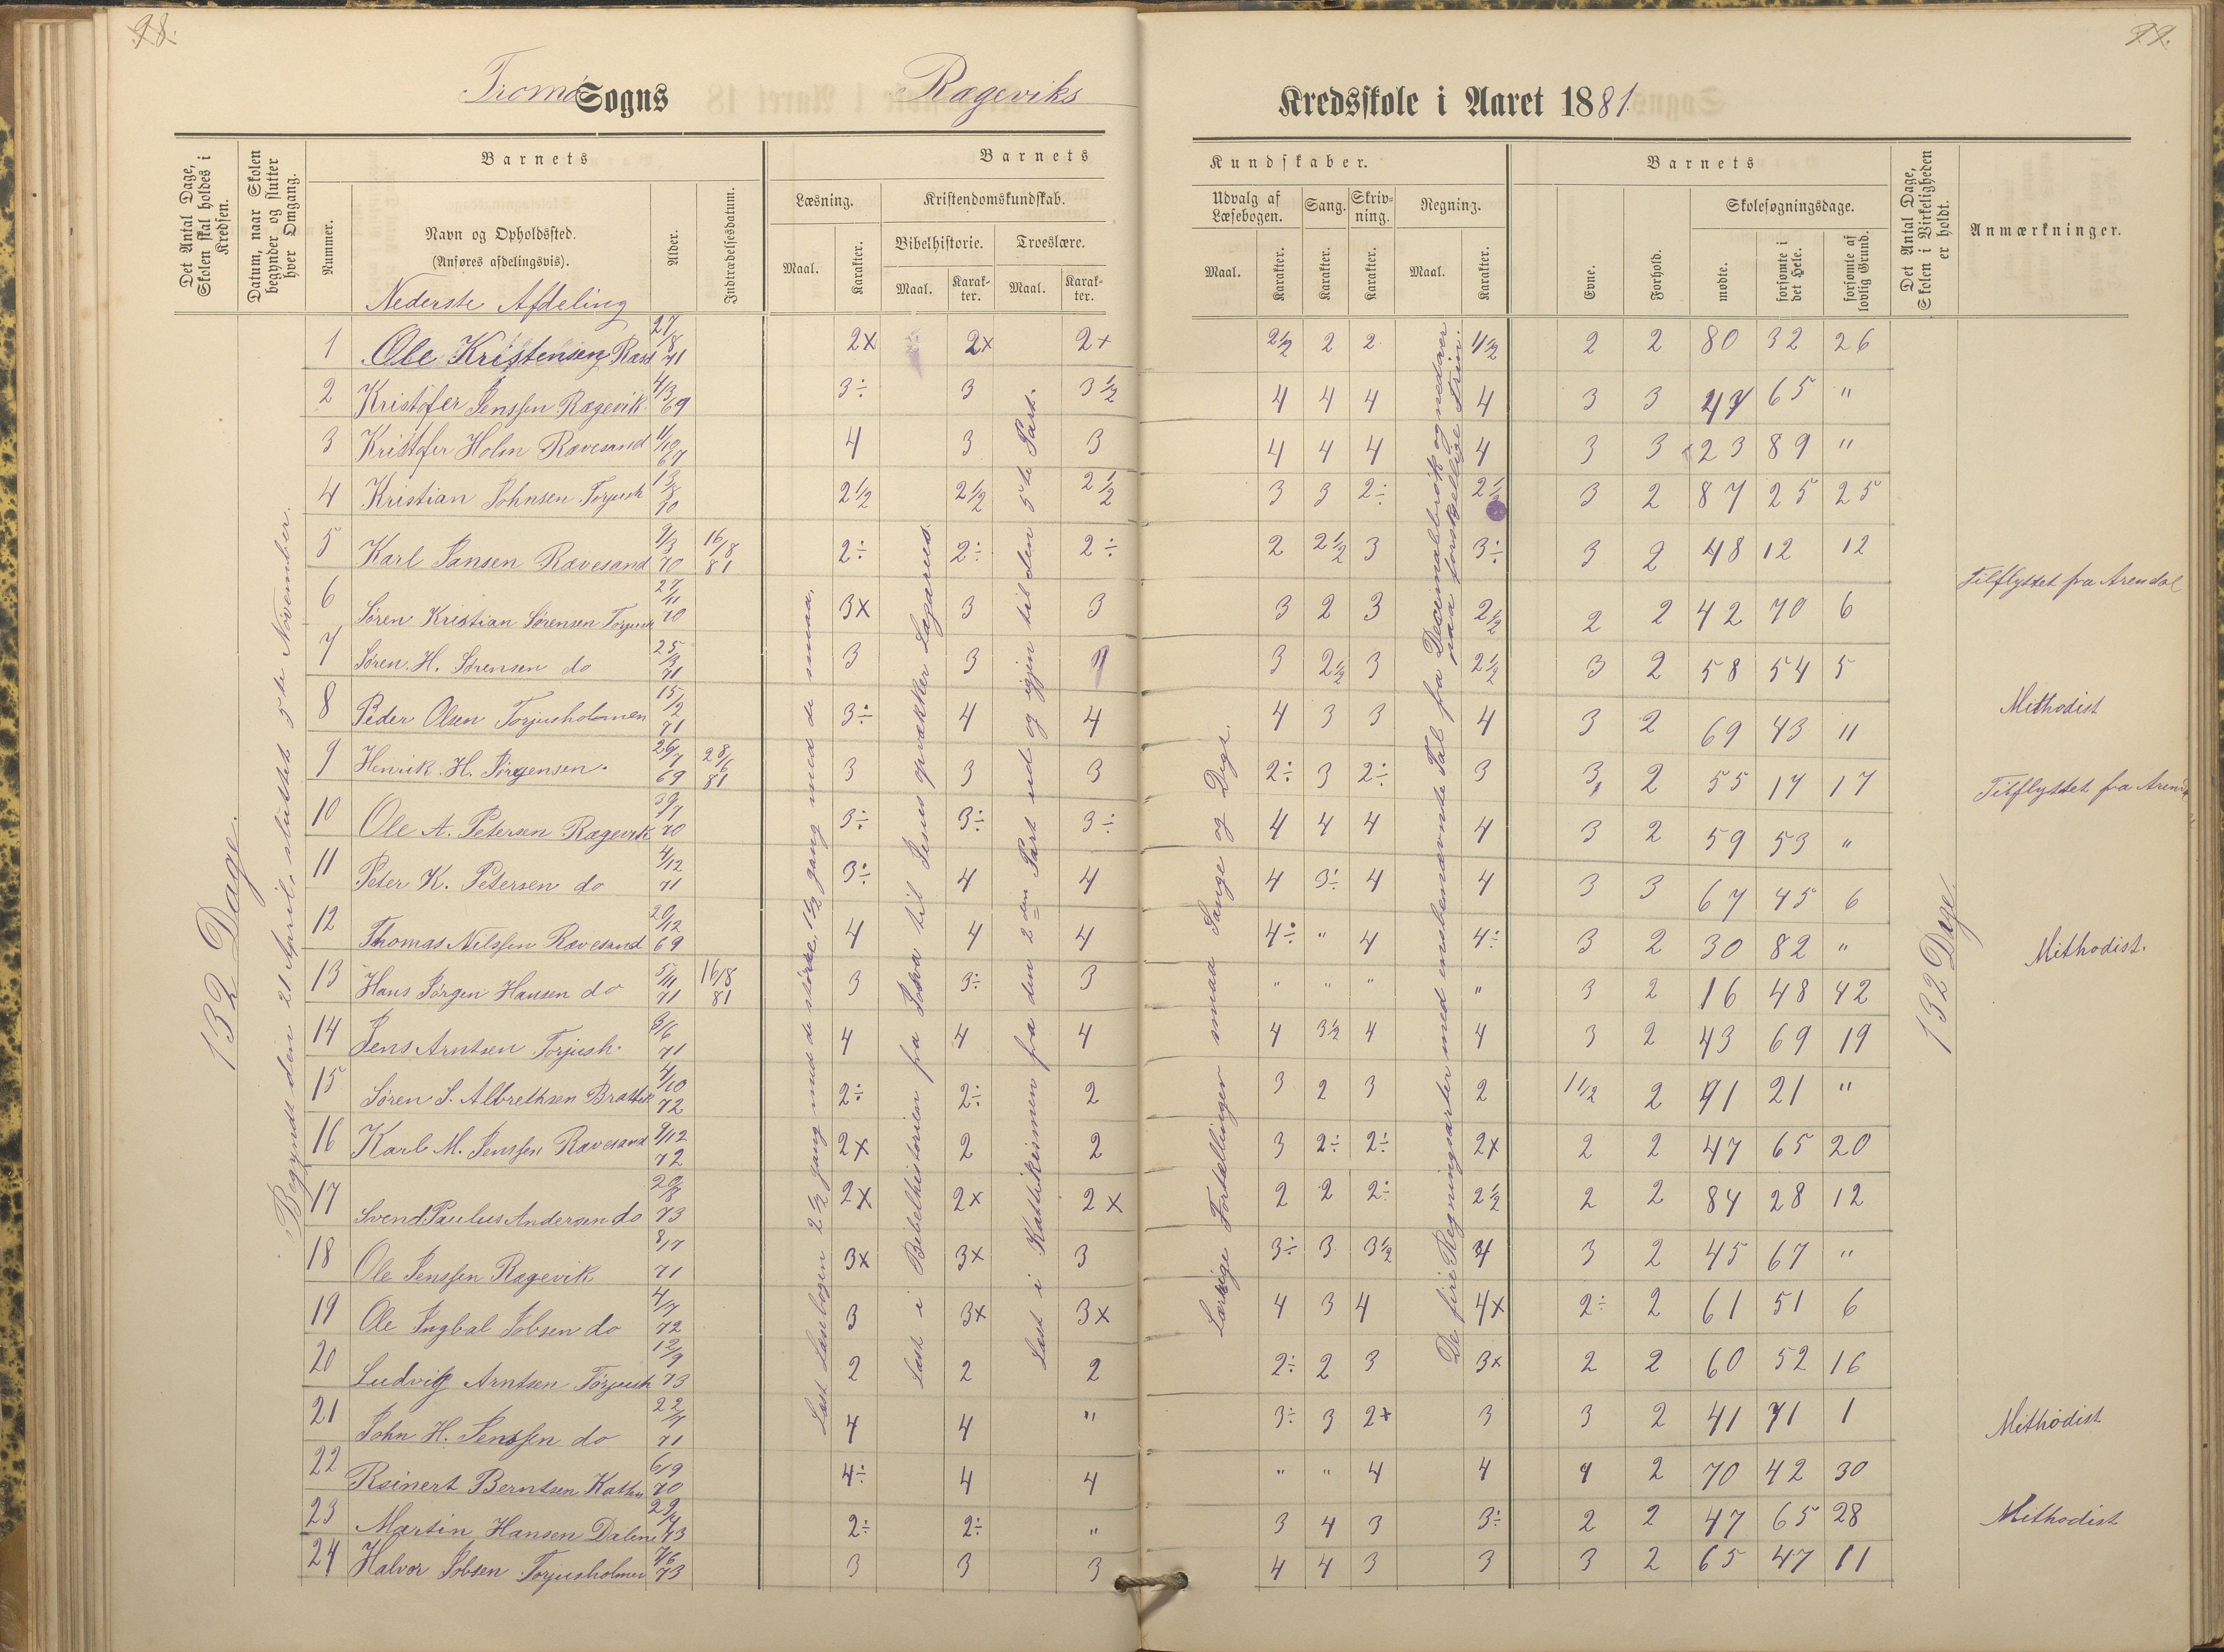 98.
99.
Tromø Sogns Rægeviks Kredsskole i Aaret 1881.
Det Antal Dage, Skolen skal holdes i Kredsen.
Datum, naar Skolen begynder og slutter hver Omgang.
Barnets
Nummer.
Navn og Opholdssted.
(Anføres afdelingsvis).
Alder.
Indtrædelsesdatum.
Barnets Kundskaber.
Læsning.
Kristendomskundskab.
Bibelhistorie.
Troeslære.
Udvalg af Læsebogen.
Sang.
Skrivning.
Regning.
Maal.
Karakter.
Maal.
Karakter.
Maal.
Karakter.
Maal.
Karakter.
Karakter.
Karakter.
Maal.
Karakter.
Barnets
Evne.
Forhold.
Skolesøgningsdage.
mødte.
forsømte i det Hele.
forsømte af lovlig Grund.
Det Antal Dage, Skolen i Virkeligheden er holdt.
Anmærkninger.
132 Dage.
Begyndt den 21 April, sluttet 5te November.
Nederste Afdeling
1 Ole Kristensen 27/8 71 2x 2x 2+ 2½ 2 2 1½ 2 2 80 32 26
2 Kristofer Jenssen Rægevik 4/3 69 3÷ 3 3½ 4 4 4 4 3 3 47 65 "
3 Kristofer Holm Ravesand 1/10 67 4 3 3 4 4 4 4 3 3 23 89 "
4 Kristian Johnsen Torjush 13/8 70 2½ 2½ 2½ 3 3 2÷ 2½ 3 2 87 25 25
5 Karl Jansen Ravesand 9/3 70 16/8 81 2÷ 2÷ 2÷ 2 2½ 3 3÷ 3 2 48 12 12 Tilflyttet fra Arendal
6 Søren Kristian Sørensen Torjush 27/11 70 3x 3 3 3 2 3 2½ 2 2 42 70 6
7 Søren H. Sørensen do 25/3 71 3 3 3 2½ 3 2½ 3 2 58 54 5
8 Peder Olsen Torjusholmen 15/2 71 3÷ 4 4 4 3 3 4 3 2 69 43 11 Methodist
9 Henrik H. Jørgensen 26/7 69 28/6 81 3 3 3 2÷ 3 2÷ 3 3 2 55 17 17 Tilflyttet fra Arendal
10 Ole A. Petersen Rægevik 70 3÷ 3÷ 3÷ 4 4 4 4 3 2 59 53 "
11 Peter K. Petersen do 4/12 71 3÷ 4 4 4 3÷ 4 4 3 3 67 45 6
12 Thomas Nilssen Ravesand 20/12 69 4 4 4 4÷ " 4 4÷ 3 2 30 82 " Methodist.
13 Hans Jørgen Hansen do 5/11 71 16/8 81 3 3÷ 3 " " " " 3 2 16 48 42
14 Jens Arntsen Torjush. 8/6 71 4 4 4 4 3½ 4 4 3 2 43 69 19
15 Søren S. Albrethsen 4/10 72 2÷ 2÷ 2 3 2 3 2 1½ 2 91 21 "
16 Karl M. Jenssen Ravesand 9/12 72 2x 2 2 3 2÷ 2÷ 2x 2 2 47 65 20
17 Svend Paulus Andersen do 20/8 73 2x 2x 2x 2 2 2÷ 2½ 2 2 84 28 12
18 Ole Jenssen Rægevik 8/7 71 3x 3x 3 3÷ 3 3½ 4 3 2 45 67 "
19 Ole Ingbal Jobsen do 4/7 72 3 3x 3x 4 3 4 4x 2÷ 2 61 51 6
20 Ludvig Arntsen Torjush 12/9 73 2 2 2 2÷ 2 3 3x 2 2 60 52 16
21 John H. Jenssen do 71 4 4 " 3÷ 3 2+ 3 3 2 41 71 1 Methodist
22 Reinert Berntsen 6/9 70 4÷ 4 4 " " 4 4 4 2 70 42 30
23 Martin Hansen Dalene 73 2÷ 2÷ " 3 4 3 3÷ 2 2 47 65 28 Methodist
24 Halvor Jobsen Torjusholmen 7/6 73 3 3 3 4 4 3 3 3 2 65 47 11
Læst Læsebogen 2½ gang med de større, 1½ gang med de smaa.
Læst i Bibelhistorien fra Josva til Jesus opvækker Lazarus.
Læst i Kathekismen fra den 2den Part ud og igjen til den 5te Part.
Lærrige Fortællinger smaa Sange og Digt.
De fire Regningsarter med ensbenævnte Tal fra Decimalbrøk og nedover paa forskjellige Trin.
132 Dage.